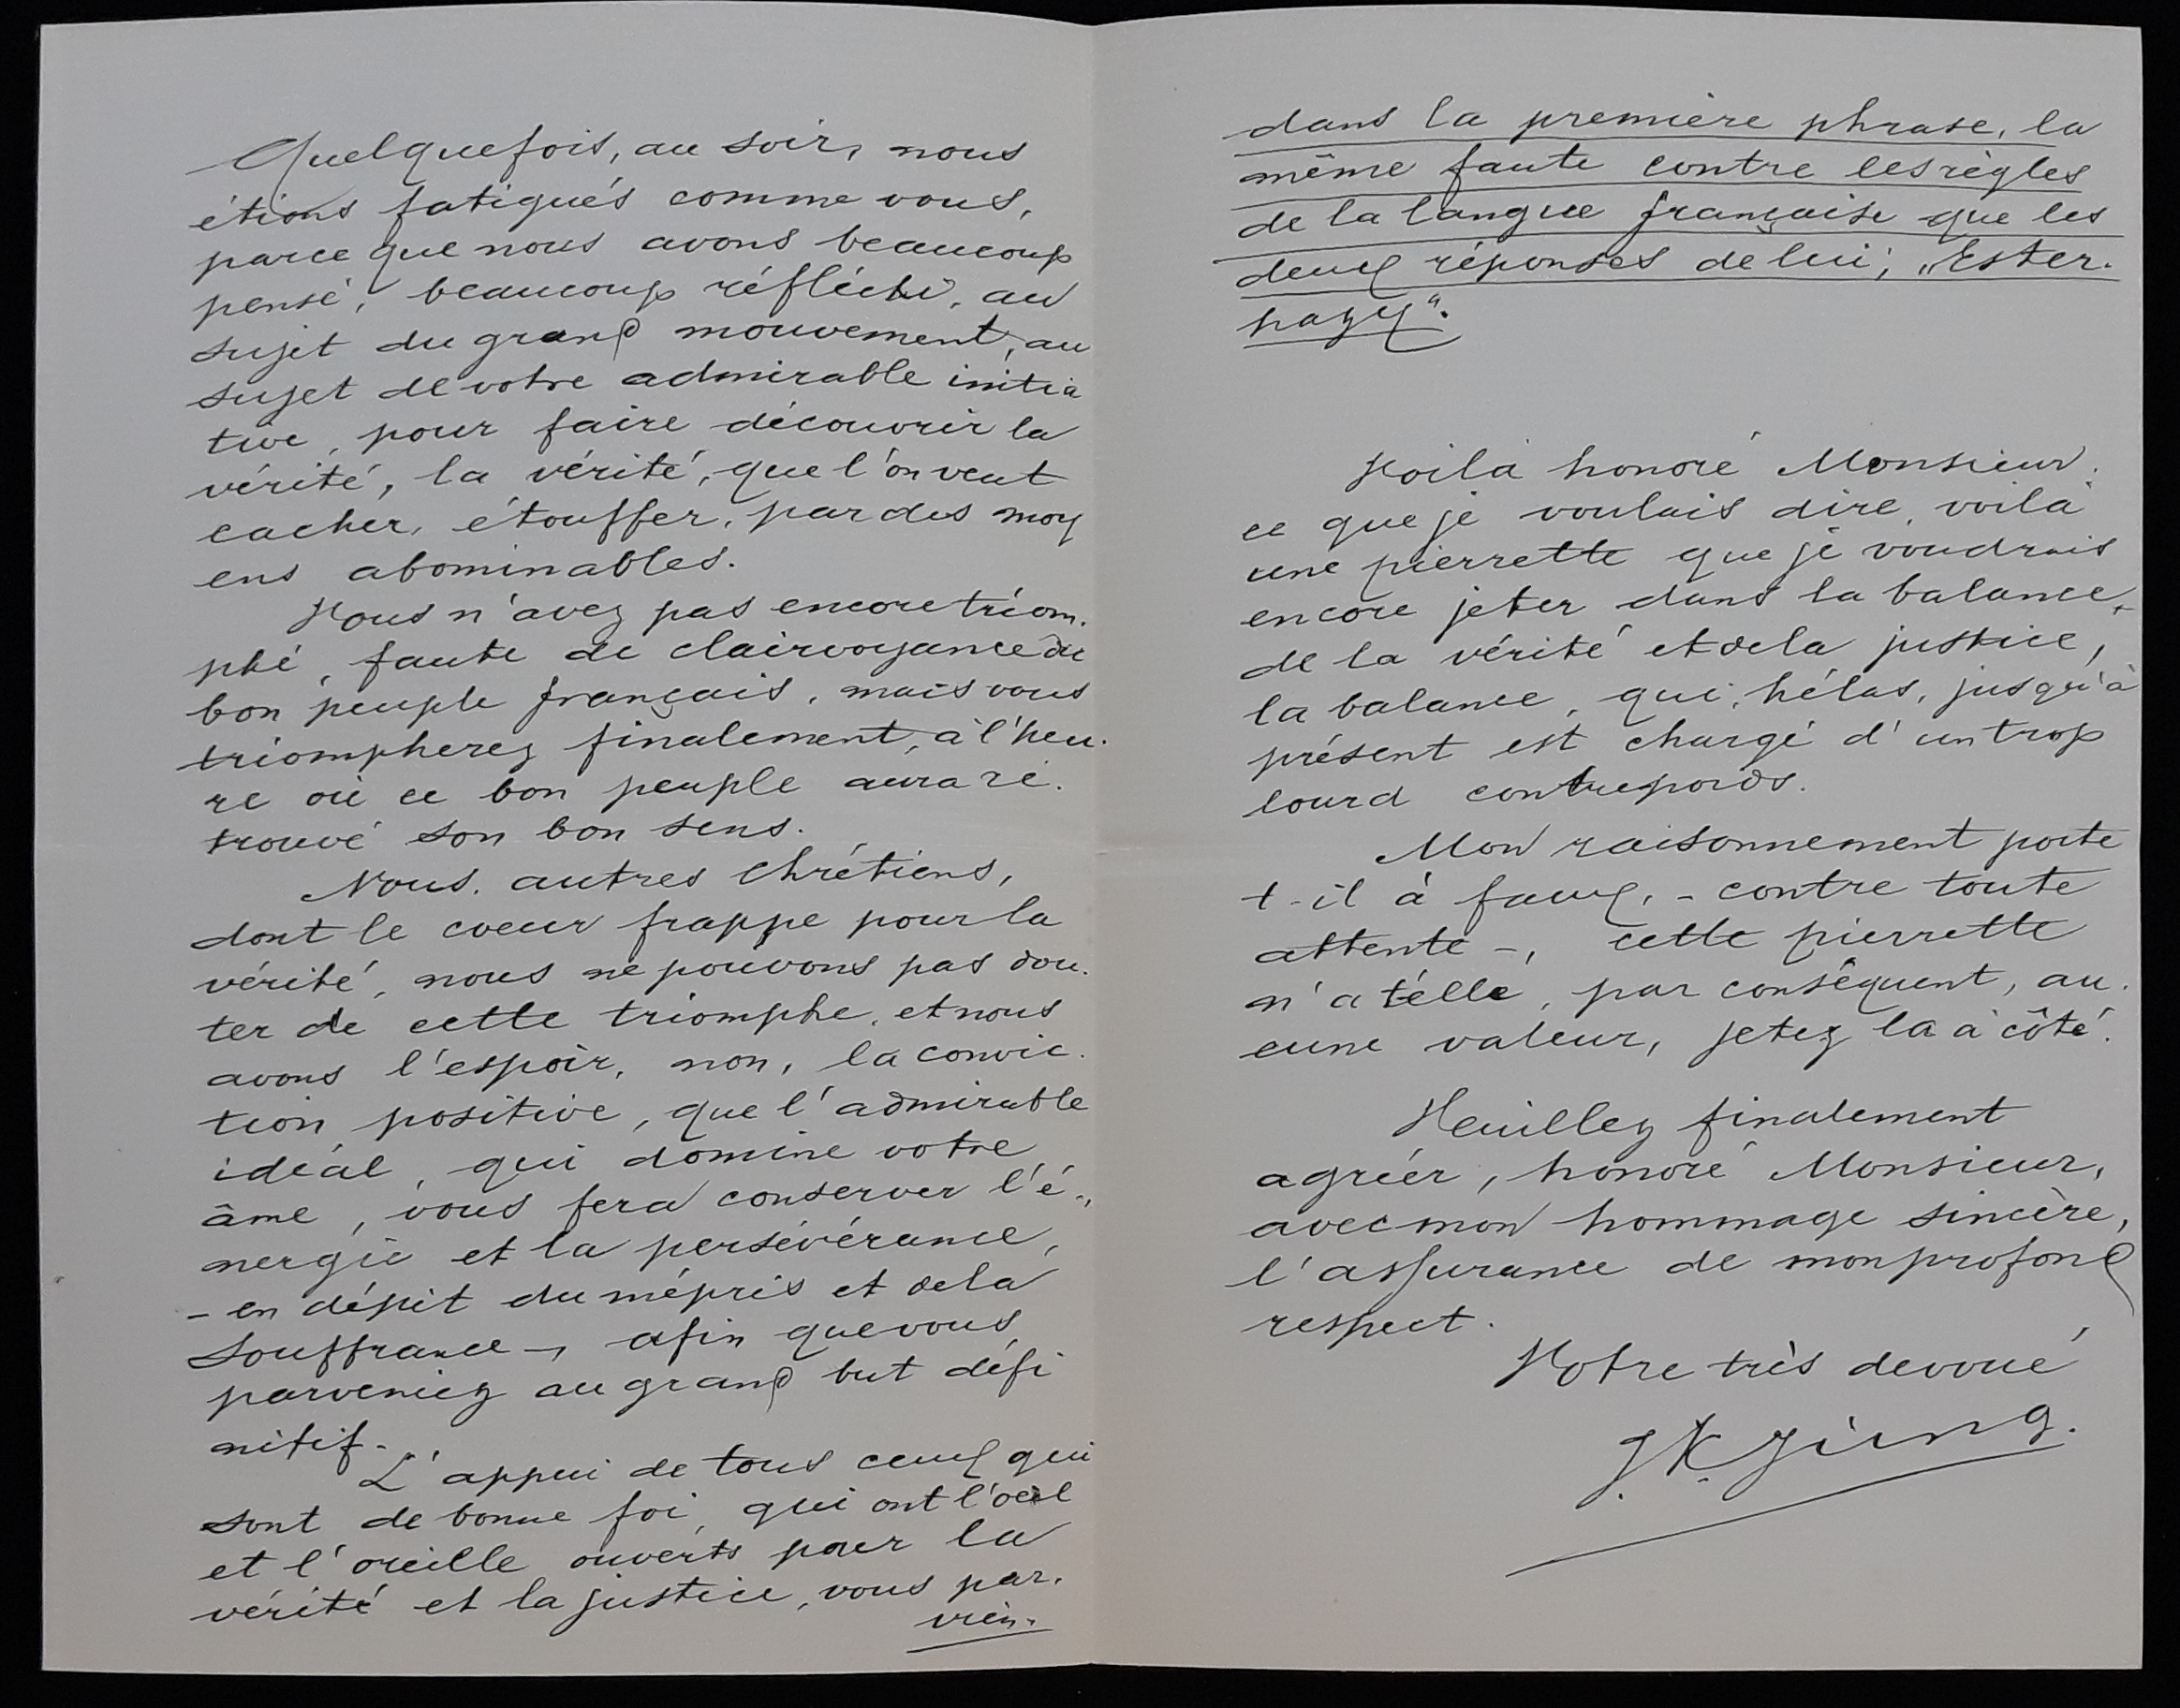 Quelquefois, au soir, nous
étions fatigués comme vous,
parce que nous avons beaucoup
pensé, beaucoup réfléchi, au
sujet du grand mouvement, au
sujet de votre admirable initia
tive, pour faire découvrir la
vérité, la vérité, que l'on veut
cacher, étouffer, par des moy
ens abominables.
Vous n'avez pas encore triom-
phé, faute de clairvoyance du
bon peuple français, mais vous
triompherez finalement, à l'heu-
re où ce bon peuple aura re-
trouvé son bon sens.
Nous, autres Chrétiens,
dont le coeur frappe pour la
vérité, nous ne pouvons pas dou-
ter de cette triomphe, et nous
avons l'espoir, non, la convic-
tion positive, que l'admirable
idéal, qui domine votre
âme, vous fera conserver l'é-
nergie et la persévérance,
- en dépit du mépris et de la
souffrance -, afin que vous
parveniez au grand but défi
nitif.
L'appui de tous ceux qui
sont de bonne foi, qui ont l'oeil
et l'oreille ouverts pour la
vérité et la justice, vous par-
vien-
dans la première phrase, la
même faute contre les règles
de la langue française que les
deux réponses de lui; „Ester-
hazy".
Voilà honoré Monsieur,
ce que je voulais dire, voilà
une pierrette que je voudrais
encore jeter dans la balance,
de la vérité et de la justice,
la balance, qui, hélas, jusqu'à
présent est chargé d'un trop
lourd contrepoids.
Mon raisonnement porte
t-il à faux, - contre toute
attente -, cette pierrette
n'a t'elle, par conséquent, au-
cune valeur, jetez la à côté.
Veuillez finalement
agréer, honoré Monsieur,
avec mon hommage sincère,
l'assurance de mon profond
respect.
Votre très dévoué